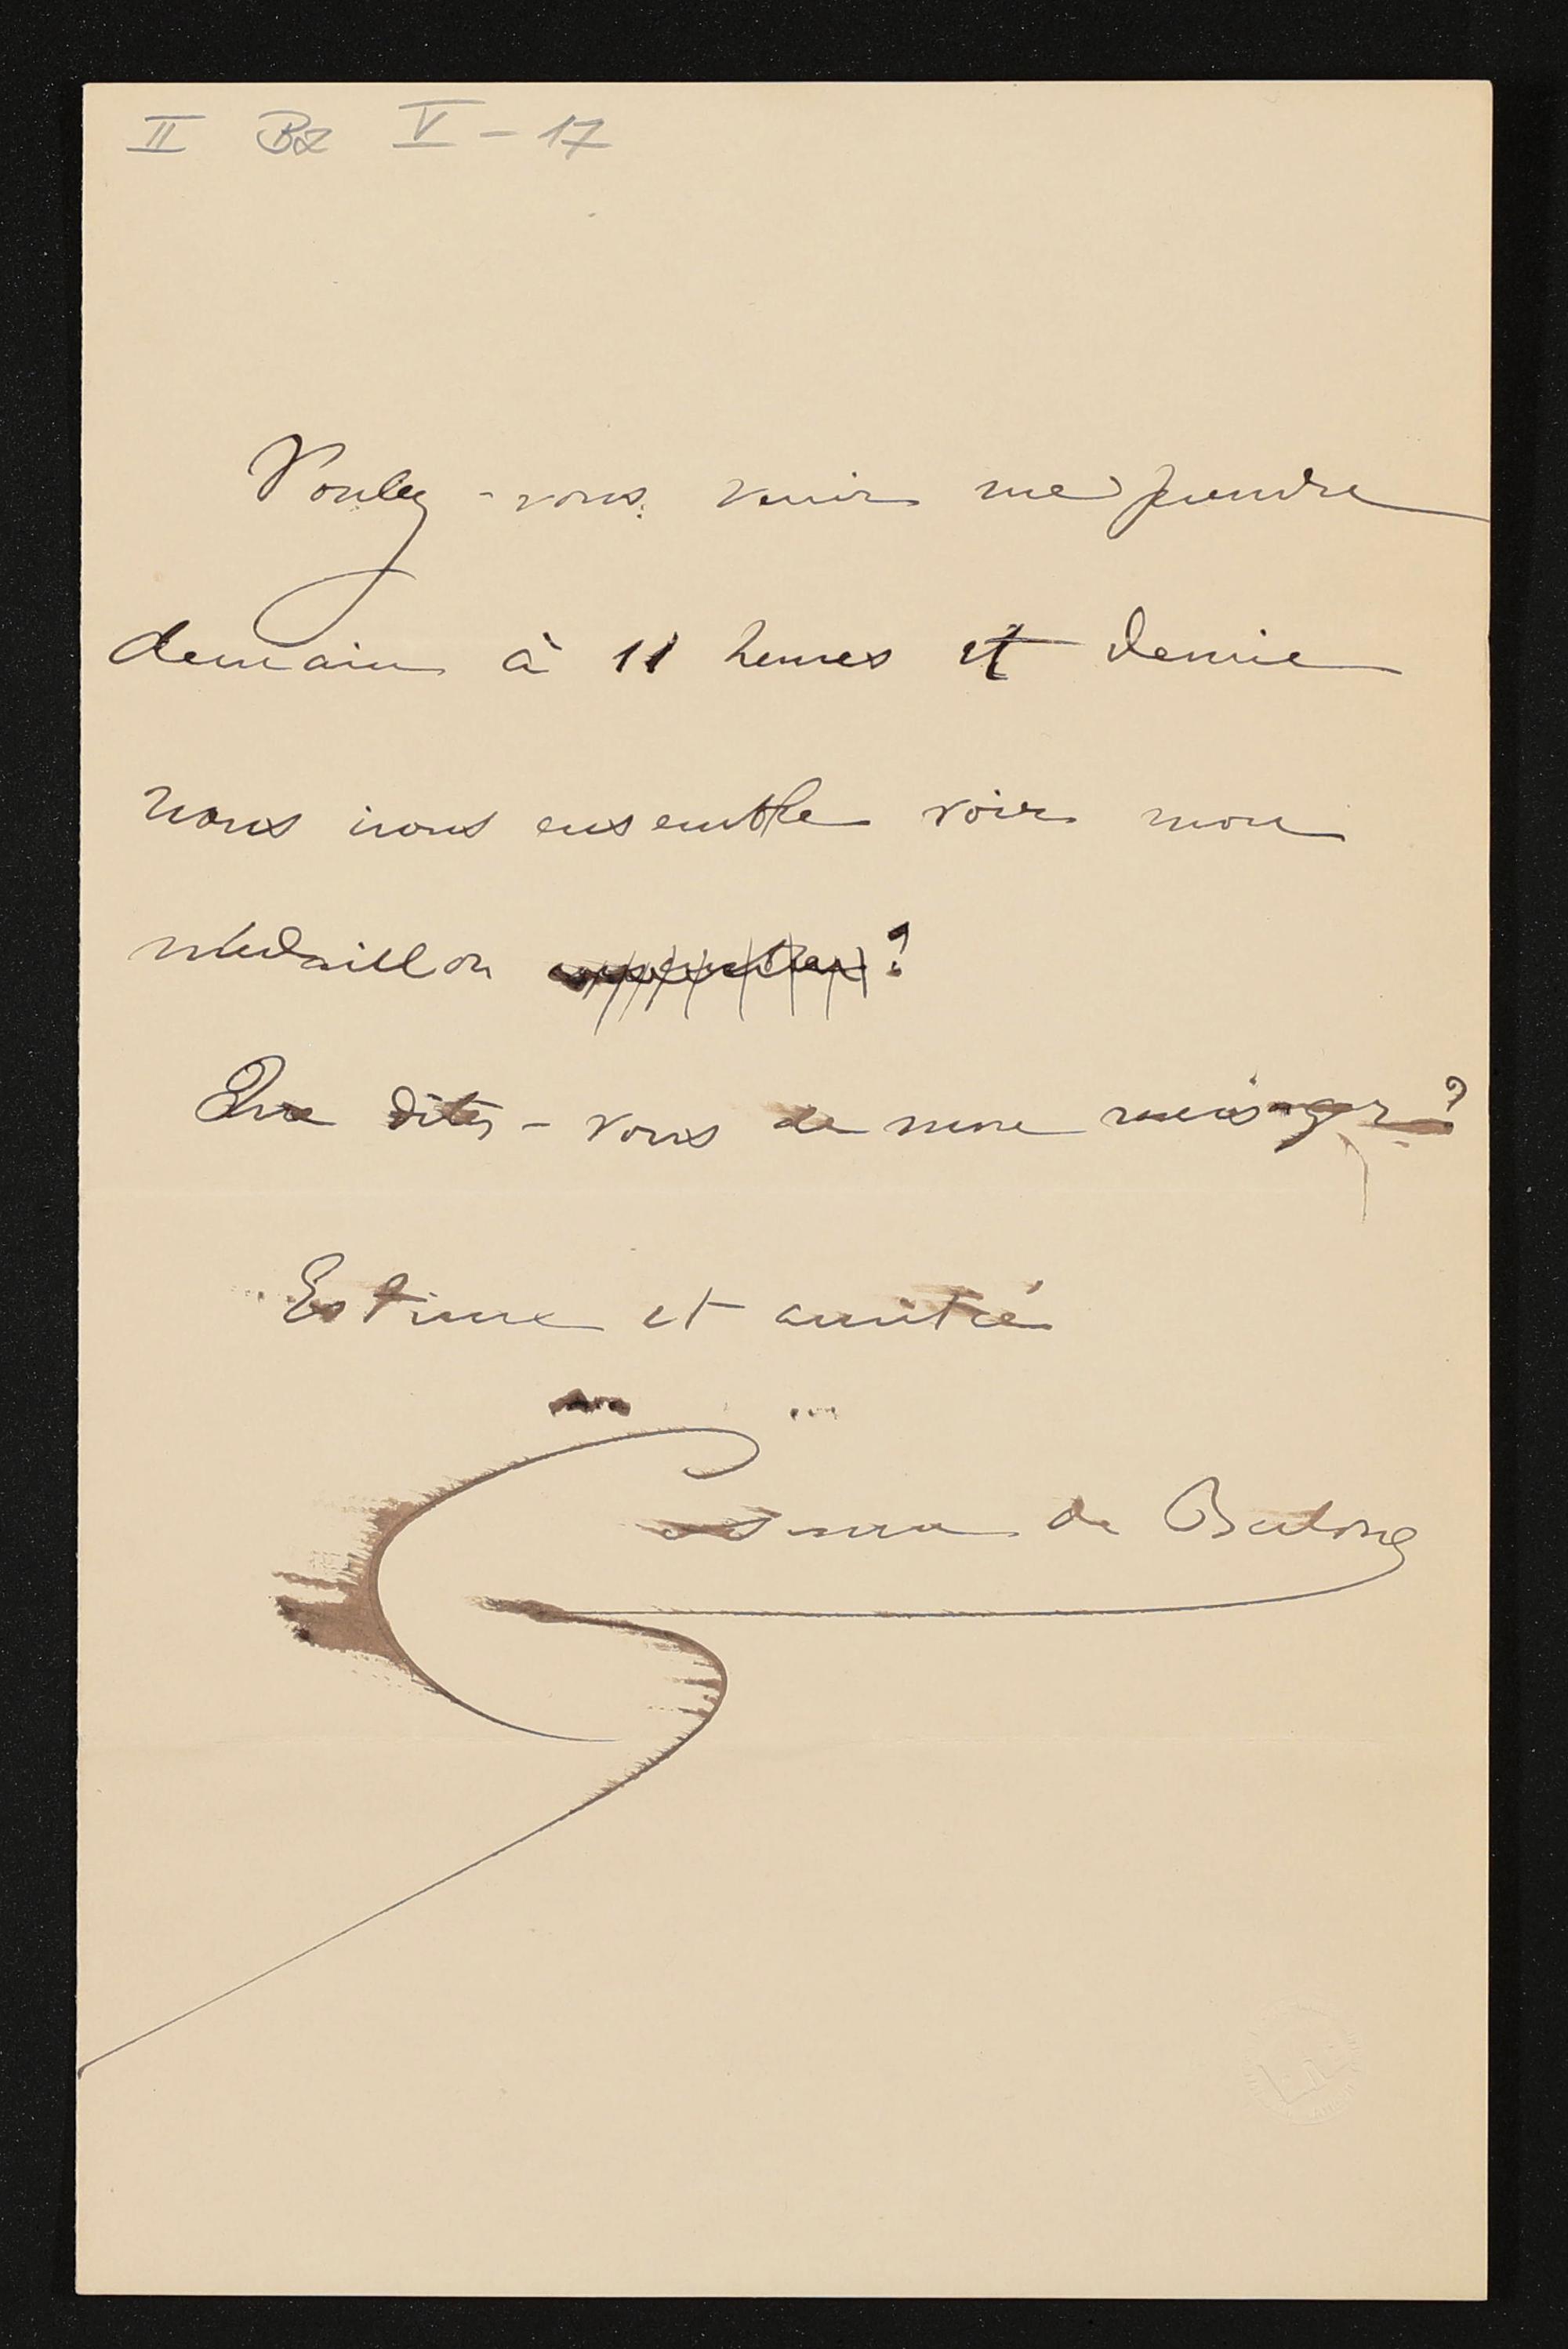 II Bz V - 17
Voulez-vous venir me prendre
demain à 11 heures et demie
nous irons ensemble voir mon
médaillon ?
Que dites-vous de mon ?
Estime et amitié
Cosima de Bulow